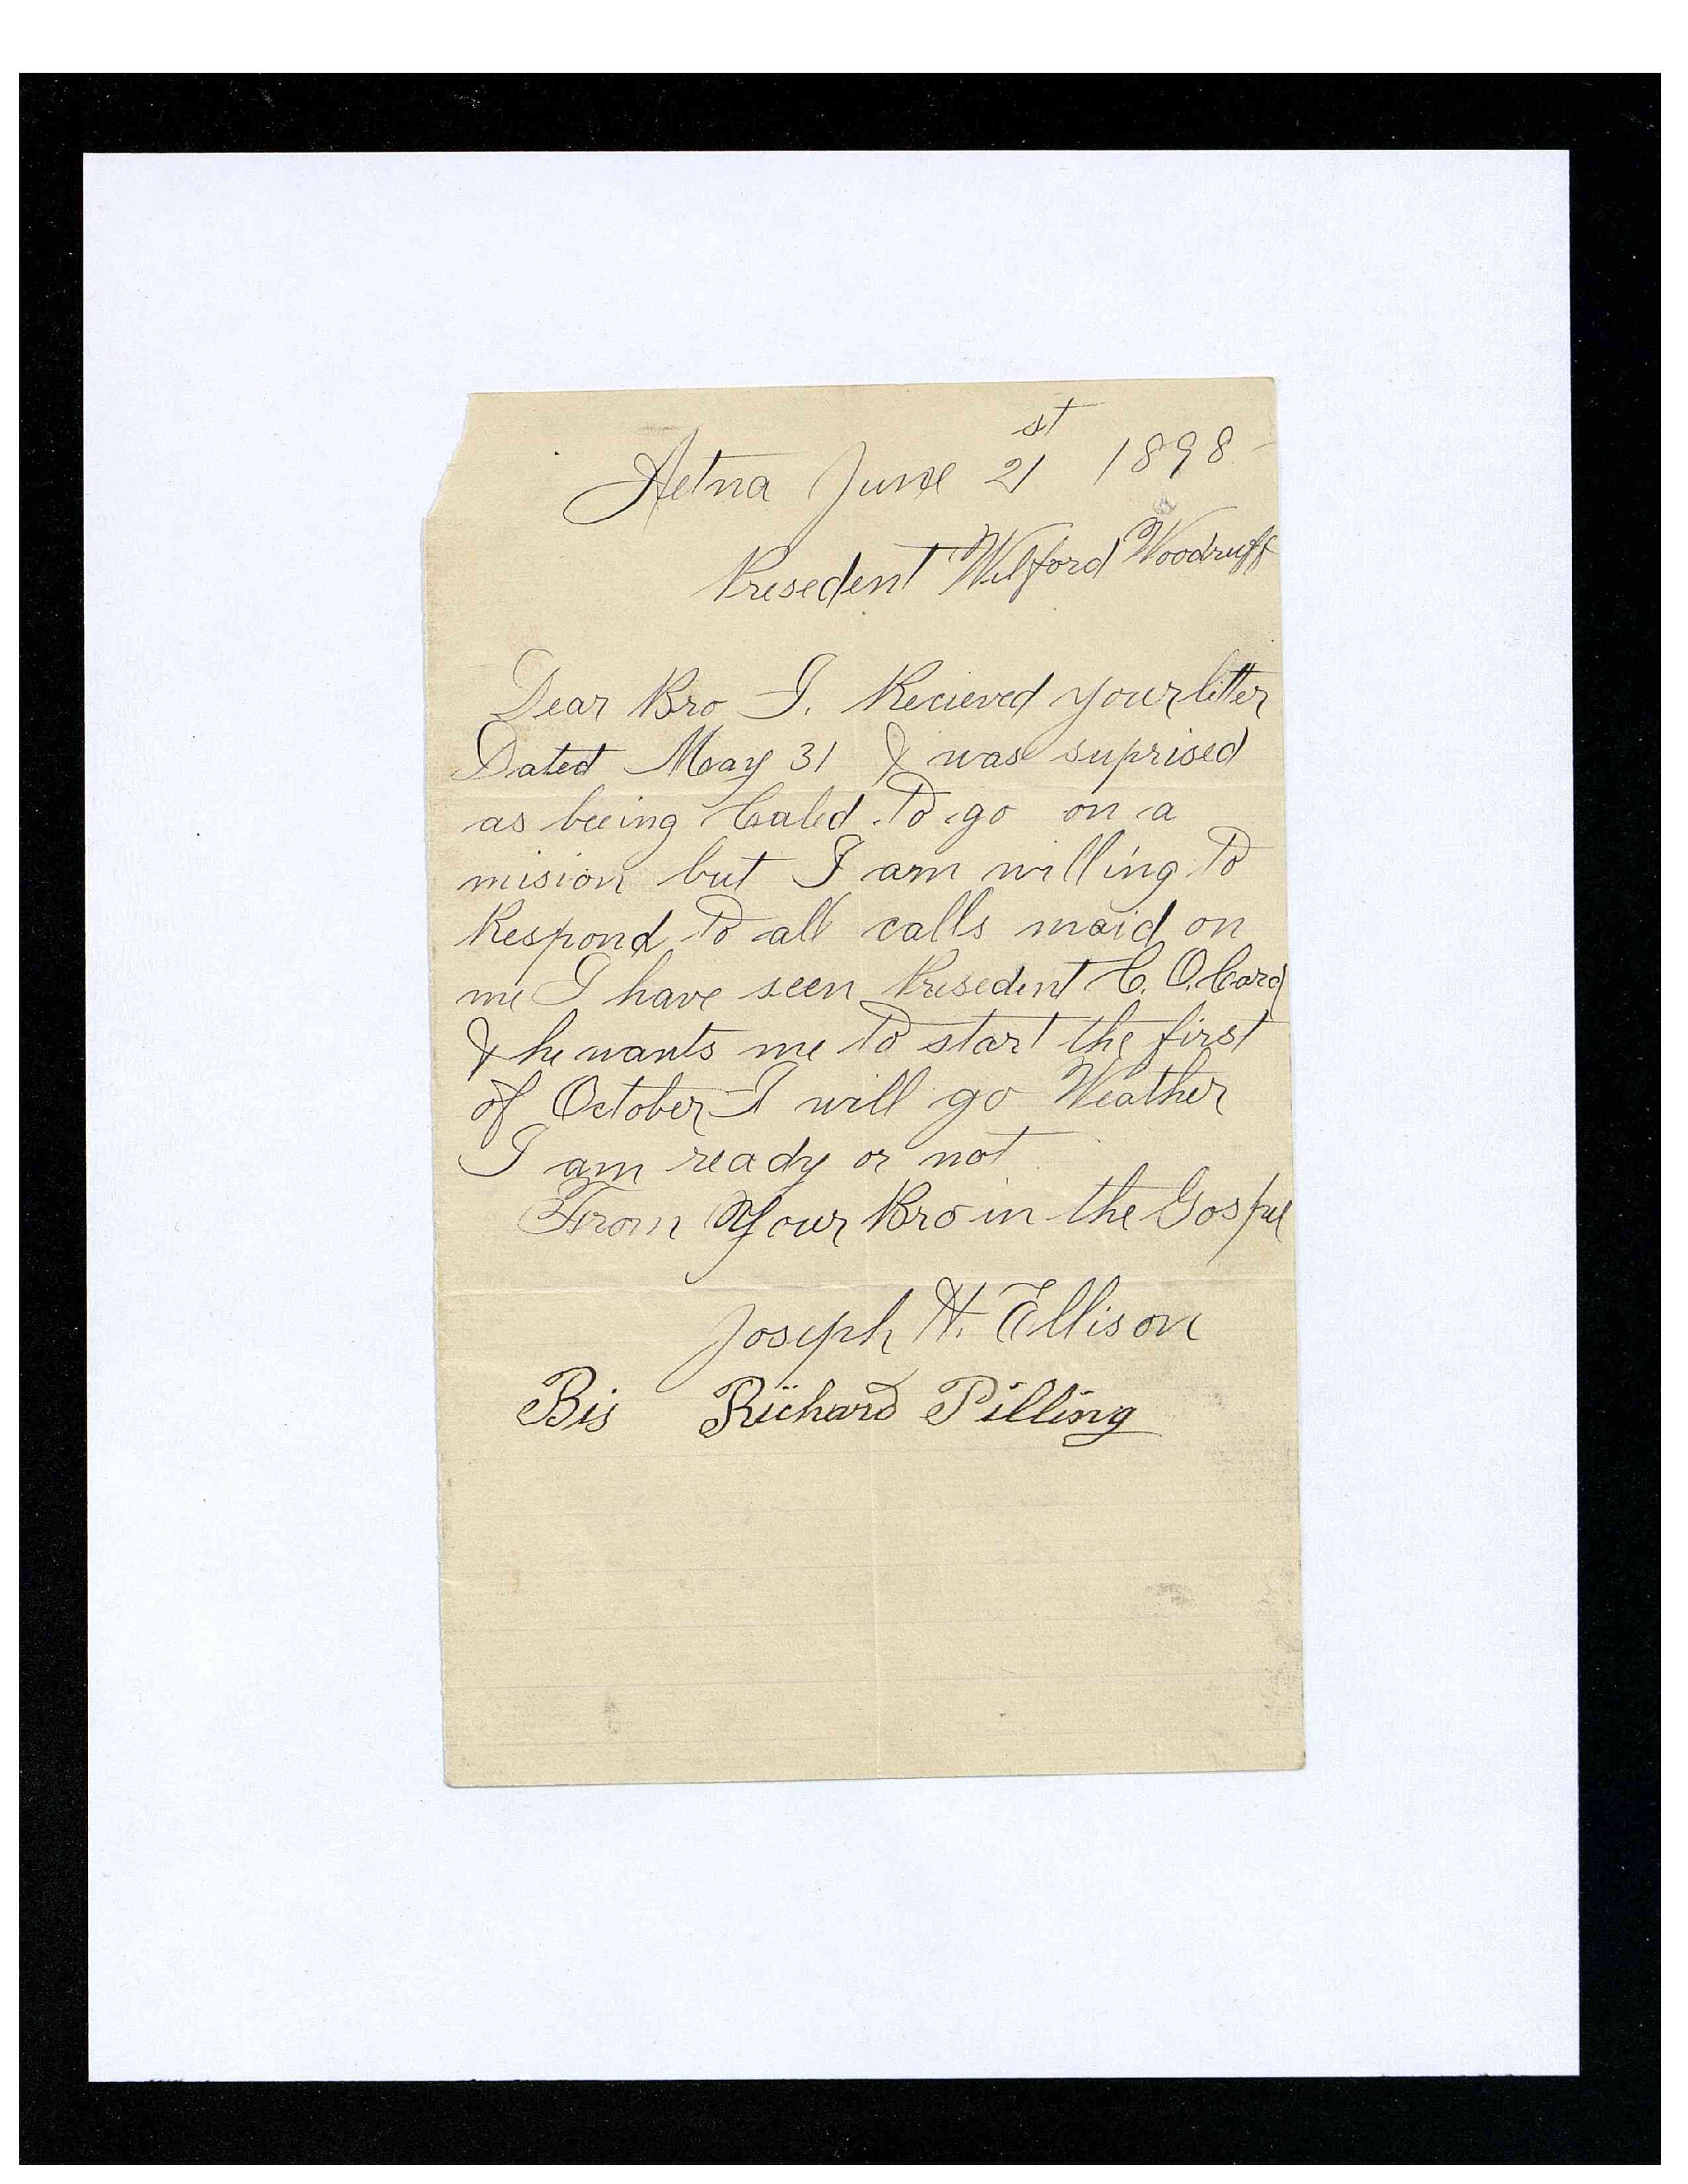 Aetna June 21st 1898
Presedent Wilford Woodruff
Dear Bro I. Recieved your letter
Dated May 31 & was suprised
as beeing Caled to go on a
mision but I am willing to
Respond to all calls maid on
me I have seen Presedent C. O. Card
& he wants me to start the first
of October I will go Weather
I am ready or not
From Your Bro in the Gospel
Joseph H. Ellison
Bis Richard Pilling